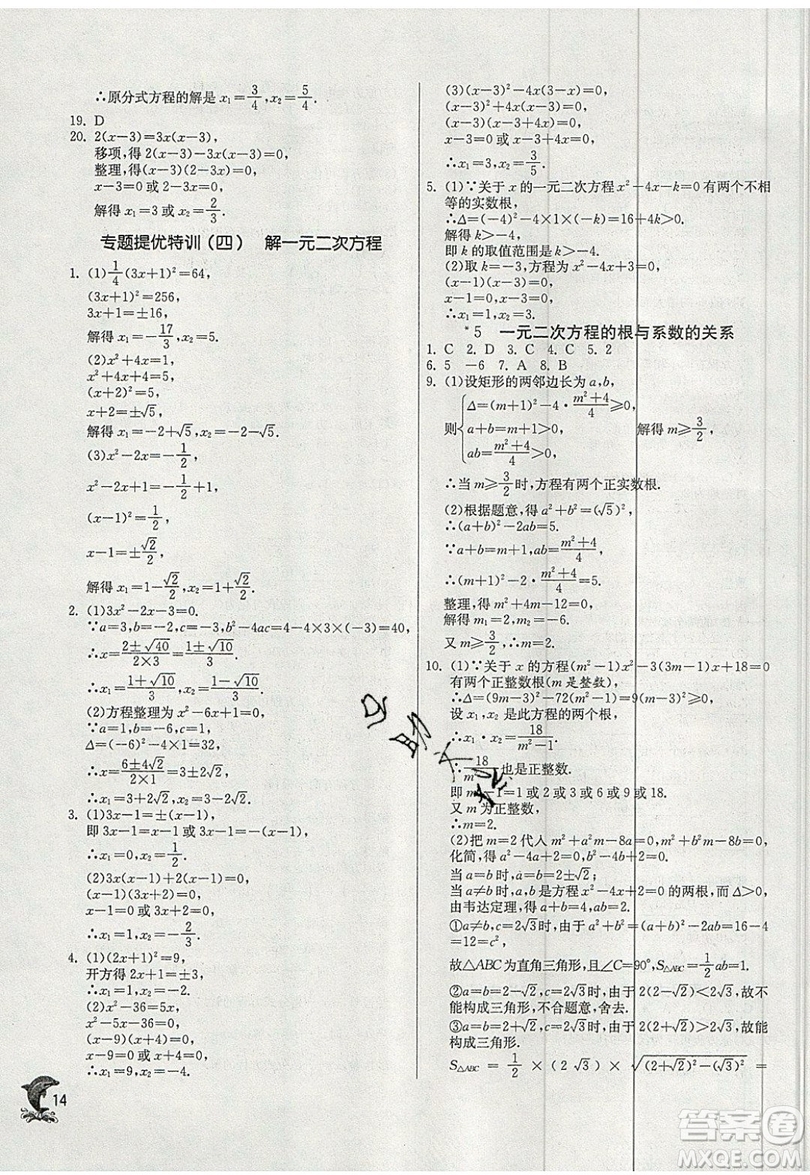 ∴原分式方程的解是 x₁=3/4, x₂=5/4.
19. D
20. 2(x−3)=3x(x−3),
移项,得 2(x−3)−3x(x−3)=0,
整理,得(x−3)(2−3x)=0,
x−3=0 或 2−3x=0,
解得 x₁=3 或 x₂=2/3.
专题提优特训(四) 解一元二次方程
1. (1)1/4(3x+1)²=64,
(3x+1)²=256,
3x+1=±16,
解得 x₁=−17/3, x₂=5.
(2)x²+4x=1,
x²+4x+4=1+4,
(x+2)²=5,
x+2=±√5,
解得 x₁=−2+√5, x₂=−2−√5.
(3)x²−2x=−1/2,
x²−2x+1=−1/2+1,
(x−1)²=1/2,
x−1=±√2/2,
解得 x₁=1−√2/2, x₂=1+√2/2.
2. (1)3x²−2x−3=0.
∵a=3,b=−2,c=−3,b²−4ac=4−4×3×(−3)=40,
∴x=(2±√40)/(2×3)=(1±√10)/3,
∴x₁=(1+√10)/3, x₂=(1−√10)/3.
(2)方程整理为 x²−6x+1=0,
Δ=(−6)²−4×1×1=32,
∴x=(6±4√2)/(2×1)=3±2√2,
∴x₁=3+2√2, x₂=3−2√2.
3. (1)3x−1=±(x−1),
即 3x−1=x−1 或 3x−1=−(x−1),
∴x₁=0, x₂=1/2.
(2)3x(x−1)+2(x−1)=0,
(x−1)(3x+2)=0,
x−1=0 或 3x+2=0,
∴x₁=1, x₂=−2/3.
4. (1)(2x+1)²=9,
开方得 2x+1=±3,
∴x₁=1, x₂=−2.
(2)x²−36=5x,
x²−5x−36=0,
(x−9)(x+4)=0,
x−9=0 或 x+4=0,
∴x₁=9, x₂=−4.
14
(3)(x−3)²−4x(3−x)=0,
(x−3)²+4x(x−3)=0,
(x−3)(x−3+4x)=0,
x−3=0 或 x−3+4x=0,
∴x₁=3, x₂=3/5.
5. (1)∵关于 x 的一元二次方程 x²−4x−k=0 有两个不相
等的实数根,
∴Δ=(−4)²−4×1×(−k)=16+4k>0,
解得 k>−4,
即 k 的取值范围是 k>−4.
(2)取 k=−3,方程为 x²−4x+3=0,
(x−3)(x−1)=0,
x−3=0,x−1=0,
∴x₁=3, x₂=1.
*5 一元二次方程的根与系数的关系
1. C 2. D 3. C 4. C 5. 2
6. 5 −6 7. A 8. B
9. (1)设矩形的两邻边长为 a,b,
则{Δ=(m+1)²−4·(m²+4)/4≥0, a+b=m+1>0, ab=(m²+4)/4>0, 解得 m≥3/2,
∴当 m≥3/2时,方程有两个正实数根.
(2)根据题意,得 a²+b²=(√5)²,
∴(a+b)²−2ab=5.
∵a+b=m+1,ab=(m²+4)/4,
∴(m+1)²−2×(m²+4)/4=5.
整理,得 m²+4m−12=0,
解得 m₁=2,m₂=−6.
又 m≥3/2,∴m=2.
10. (1)∵关于 x 的方程(m²−1)x²−3(3m−1)x+18=0
有两个正整数根(m 是整数),
∴Δ=(9m−3)²−72(m²−1)=9(m−3)²≥0,
设 x₁,x₂ 是此方程的两个根,
∴x₁·x₂=18/(m²−1).
∴18/(m²−1)也是正整数.
即 m²−1=1 或 2 或 3 或 6 或 9 或 18,
又 m 为正整数,
∴m=2.
(2)把 m=2 代入 m²+a²m−8a=0,
化简,得 a²−4a+2=0,
当 a=b 时,a=b=2±√2,
当 a≠b 时,a,b 是方程的两根,而 Δ>0,
由韦达定理,得 a+b=4,ab=2.
①a≠b,c=2√3时,由于 a²+b²=(a+b)²−2ab=16−4
=12=c²,
故△ABC 为直角三角形,且∠C=90°,S△ABC=1/2ab=1.
②a=b=2−√2,c=2√3时,由于 2(2−√2)<2√3,故不
能构成三角形,不合题意,舍去.
③a=b=2+√2,c=2√3时,由于 2(2+√2)>2√3,故能
构成三角形.
S△ABC=1/2×(2√3)×√((2+√2)²−(√3)²)=
答案卷
MXQE.COM